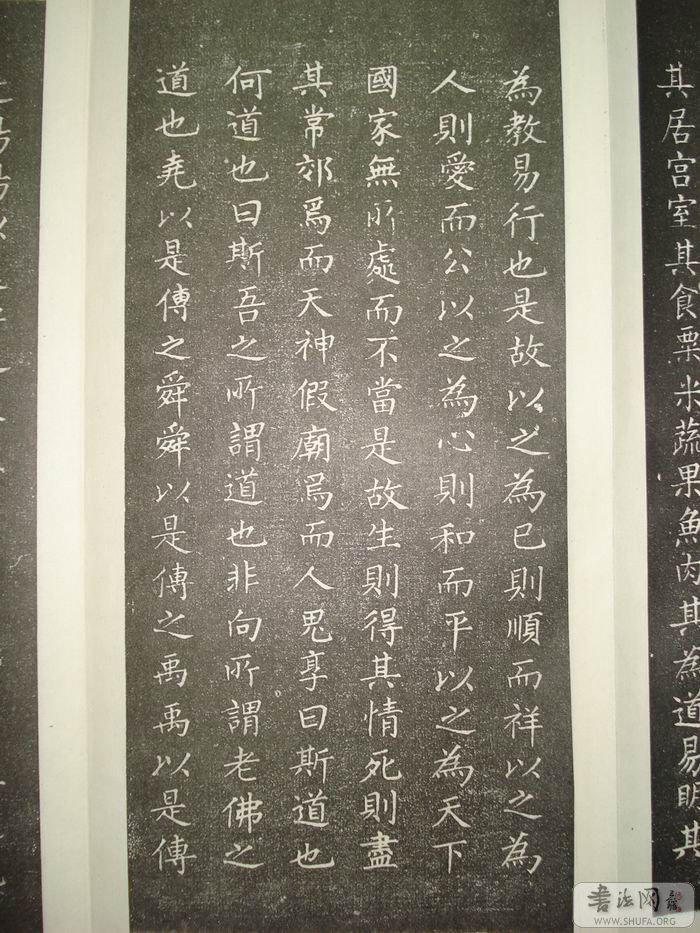 其居宫室其食粟米蔬果魚肉其為道易明其
為教易行也是故以之為己則順而祥以之為
人則愛而公以之為心則和而平以之為天下
國家無所處而不當是故生則得其情死則盡
其常郊焉而天神假廟焉而人鬼享曰斯道也
何道也曰斯吾之所謂道也非向所謂老佛之
道也堯以是傳之舜舜以是傳之禹禹以是傳
書法网
WWW.SHUFA.ORG